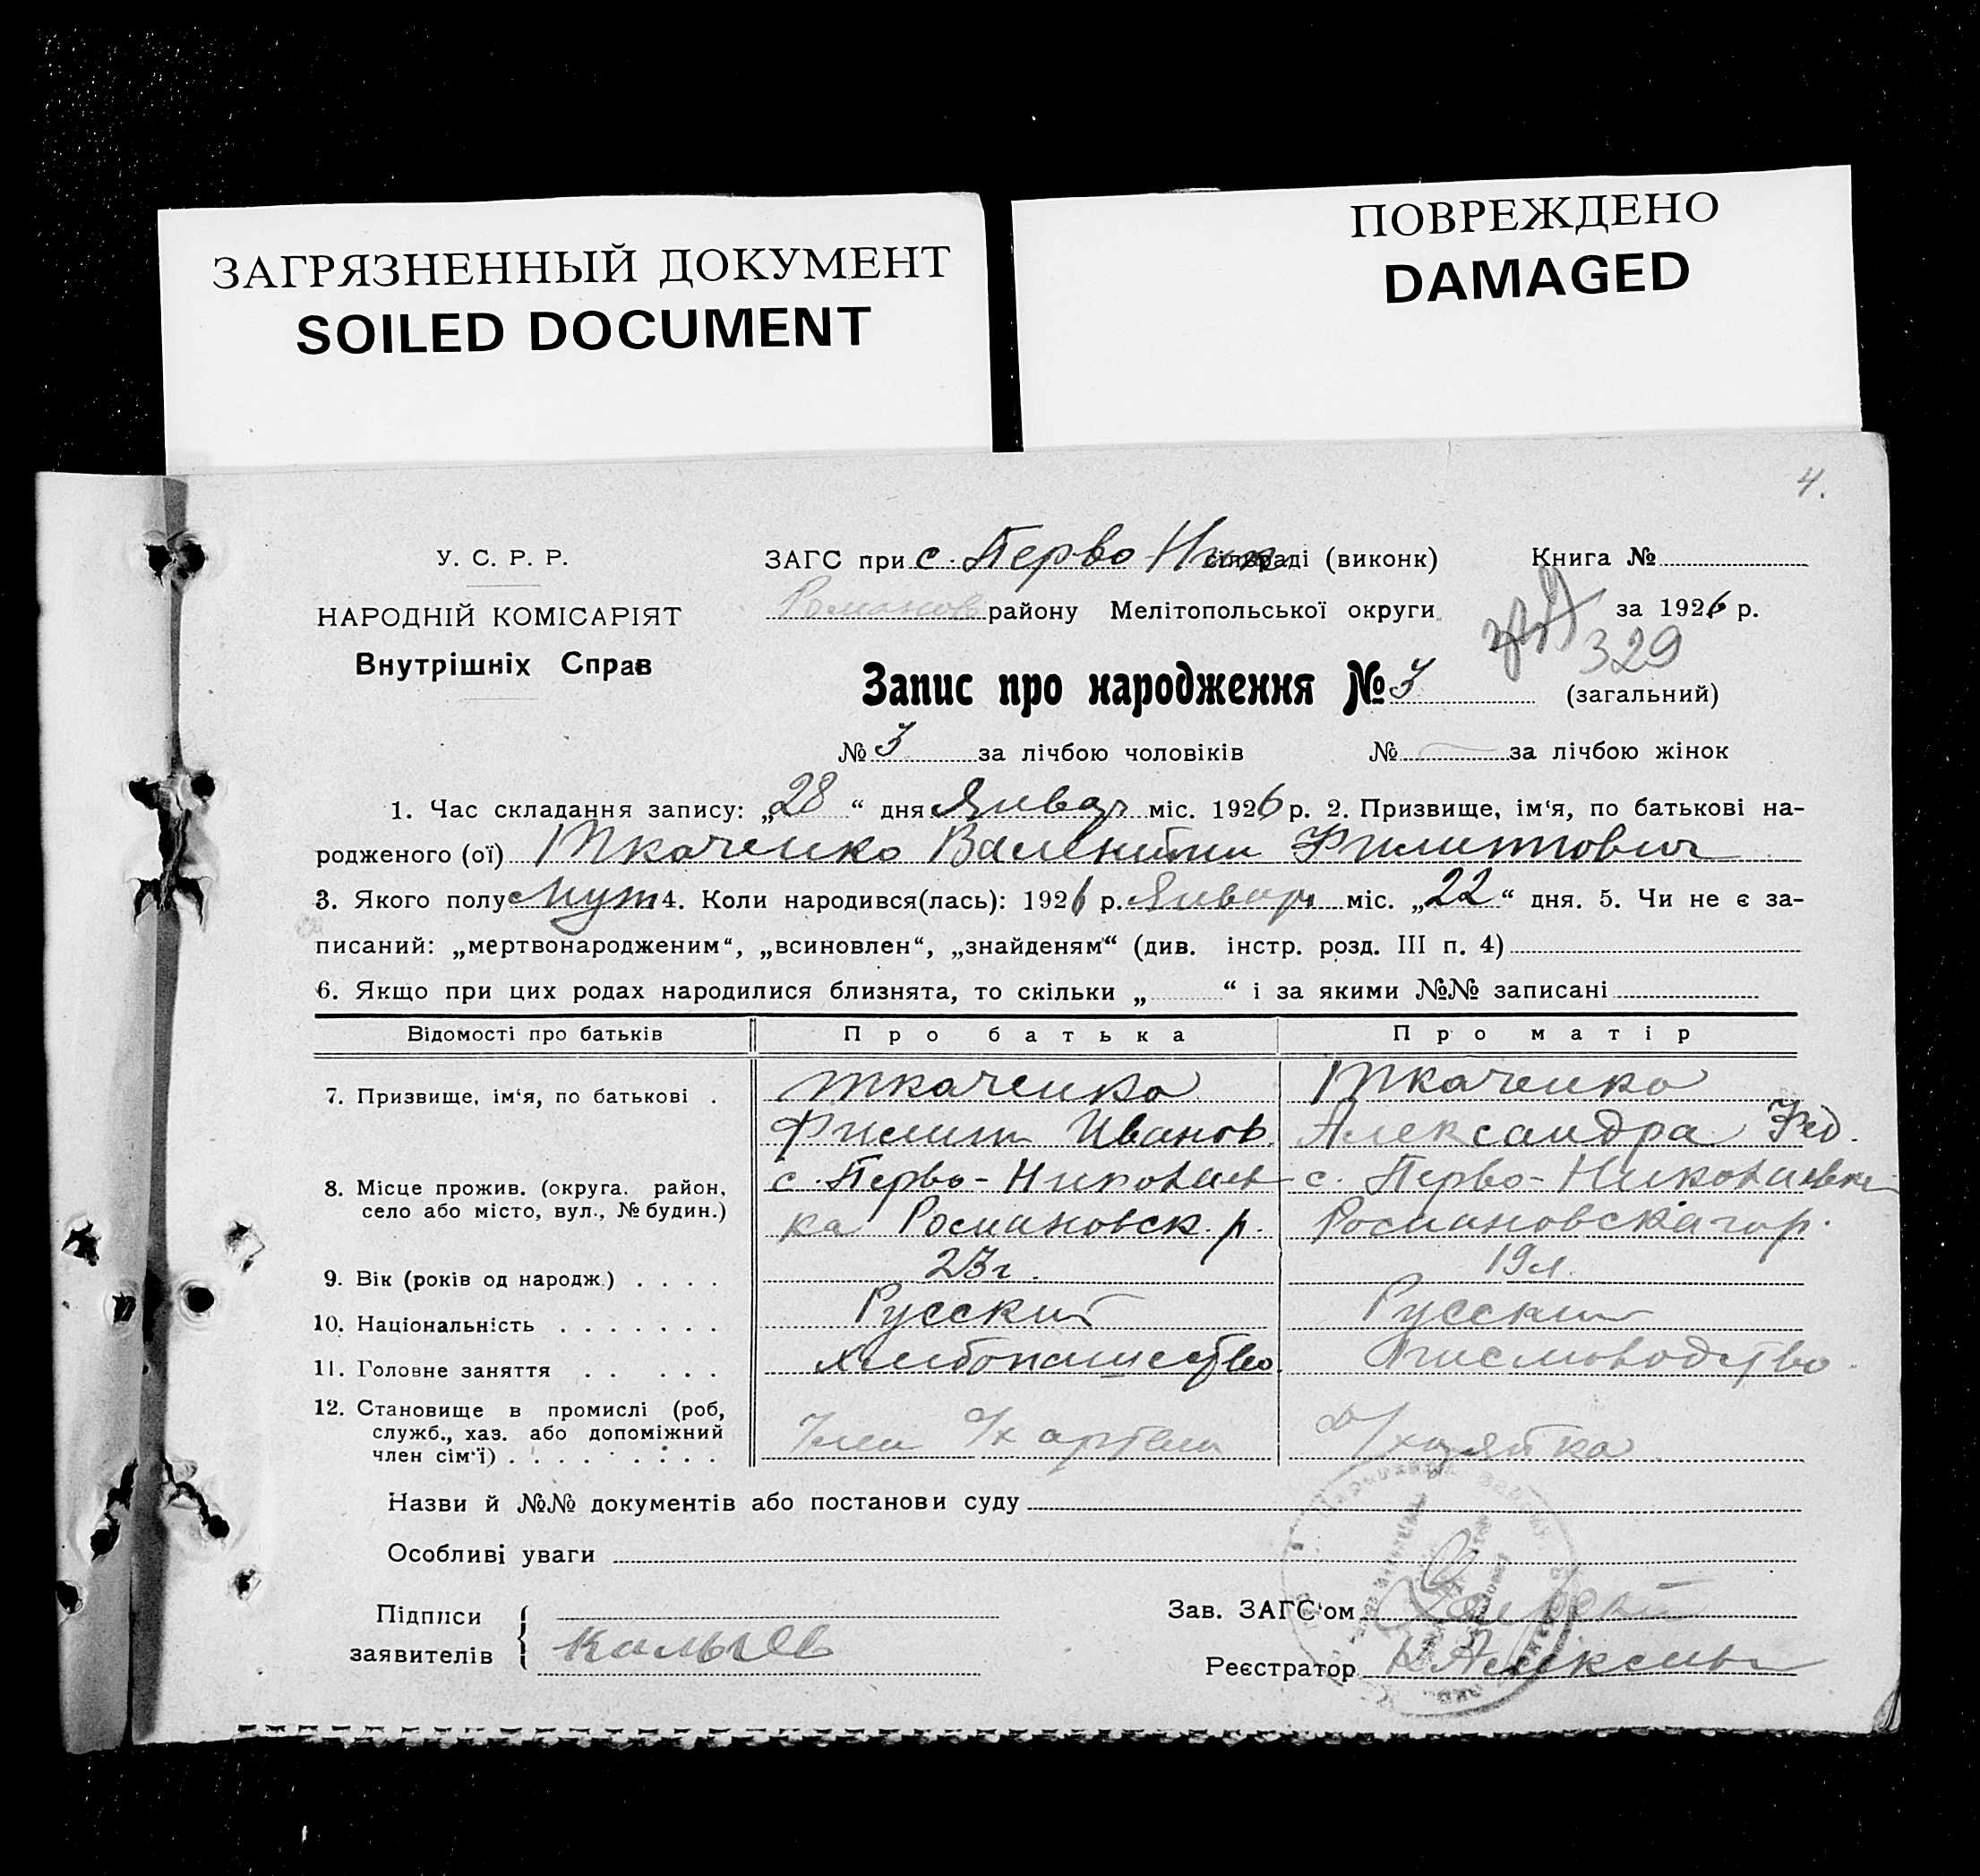 ЗАГРЯЗНЕННЫЙ ДОКУМЕНТ
SOILED DOCUMENT
ПОВРЕЖДЕНО
DAMAGED
4.
У. С. Р. Р.
НАРОДНІЙ КОМІСАРІЯТ
Внутрішніх Справ
ЗАГС при с. Перво Ник сільраді (виконк) Книга №
Романов району Мелітопольської округи за 1926 р.
329
Запис про народження № 3 (загальний)
№ 3 за лічбою чоловіків № — за лічбою жінок
1. Час складання запису: „28“ дня Января міс. 1926 р. 2. Призвище, ім‘я, по батькові на-
родженого (ої) Ткаченко Валентин Филиппович
3. Якого полу муж 4. Коли народився(лась): 1926 р. Января міс. „22“ дня. 5. Чи не є за-
писаний: „мертвонародженим“, „всиновлен“, „знайденям“ (див. інстр. розд. III п. 4)
6. Якщо при цих родах народилися близнята, то скільки „ “ і за якими №№ записані
Відомості про батьків Про батька Про матір
7. Призвище, ім‘я, по батькові . Ткаченко Ткаченко
Филипп Иванов. Александра Фед.
8. Місце прожив. (округа, район, село або місто, вул., № будин.) с. Перво-Николаев с. Перво-Николаевка
ка Романовск. р. Романовскаго р.
9. Вік (років од народж.) . . . . 23 г. 19 л.
10. Національність . . . . . . . Русский Русский
11. Головне заняття . . . . . Хлебопашество
12. Становище в промислі (роб, служб., хаз. або допоміжний член сім‘ї) . . . . . . . . Член с/х артели д/хазяйка
Назви й №№ документів або постанови суду
Особливі уваги
Підписи
заявителів
Зав. ЗАГС‘ом
Реєстратор